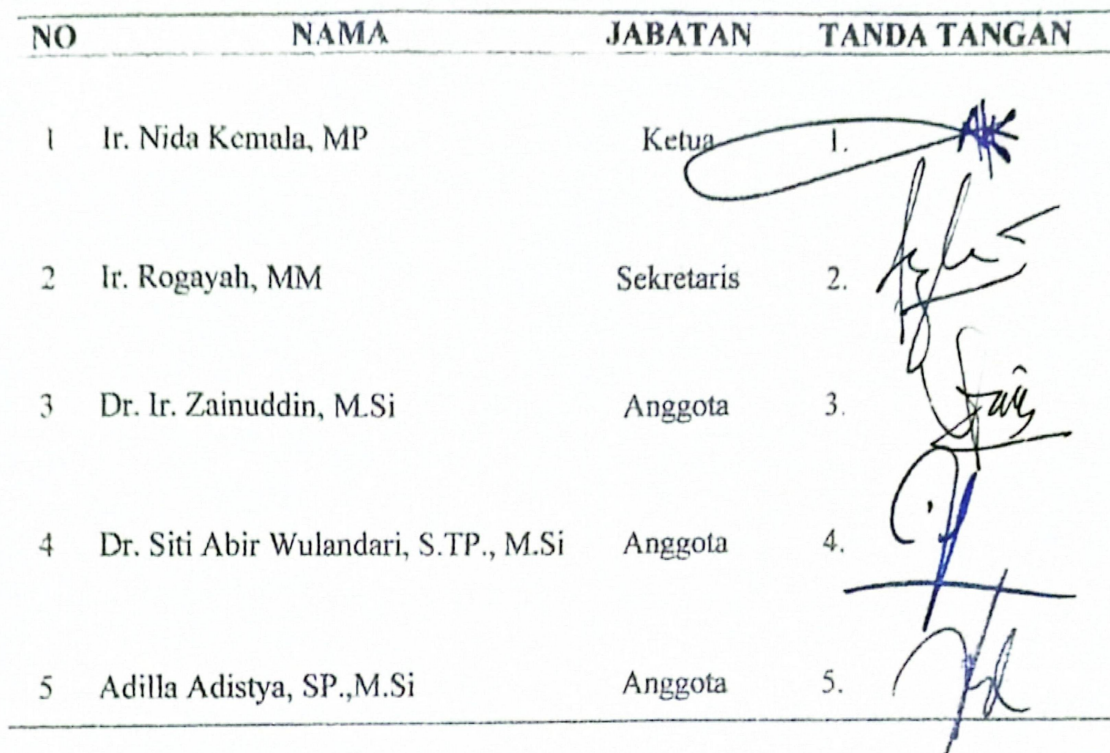 NO NAMA JABATAN TANDA TANGAN
1 Ir. Nida Kemala, MP Ketua 1.
2 Ir. Rogayah, MM Sekretaris 2.
3 Dr. Ir. Zainuddin, M.Si Anggota 3.
4 Dr. Siti Abir Wulandari, S.TP., M.Si Anggota 4.
5 Adilla Adistya, SP.,M.Si Anggota 5.